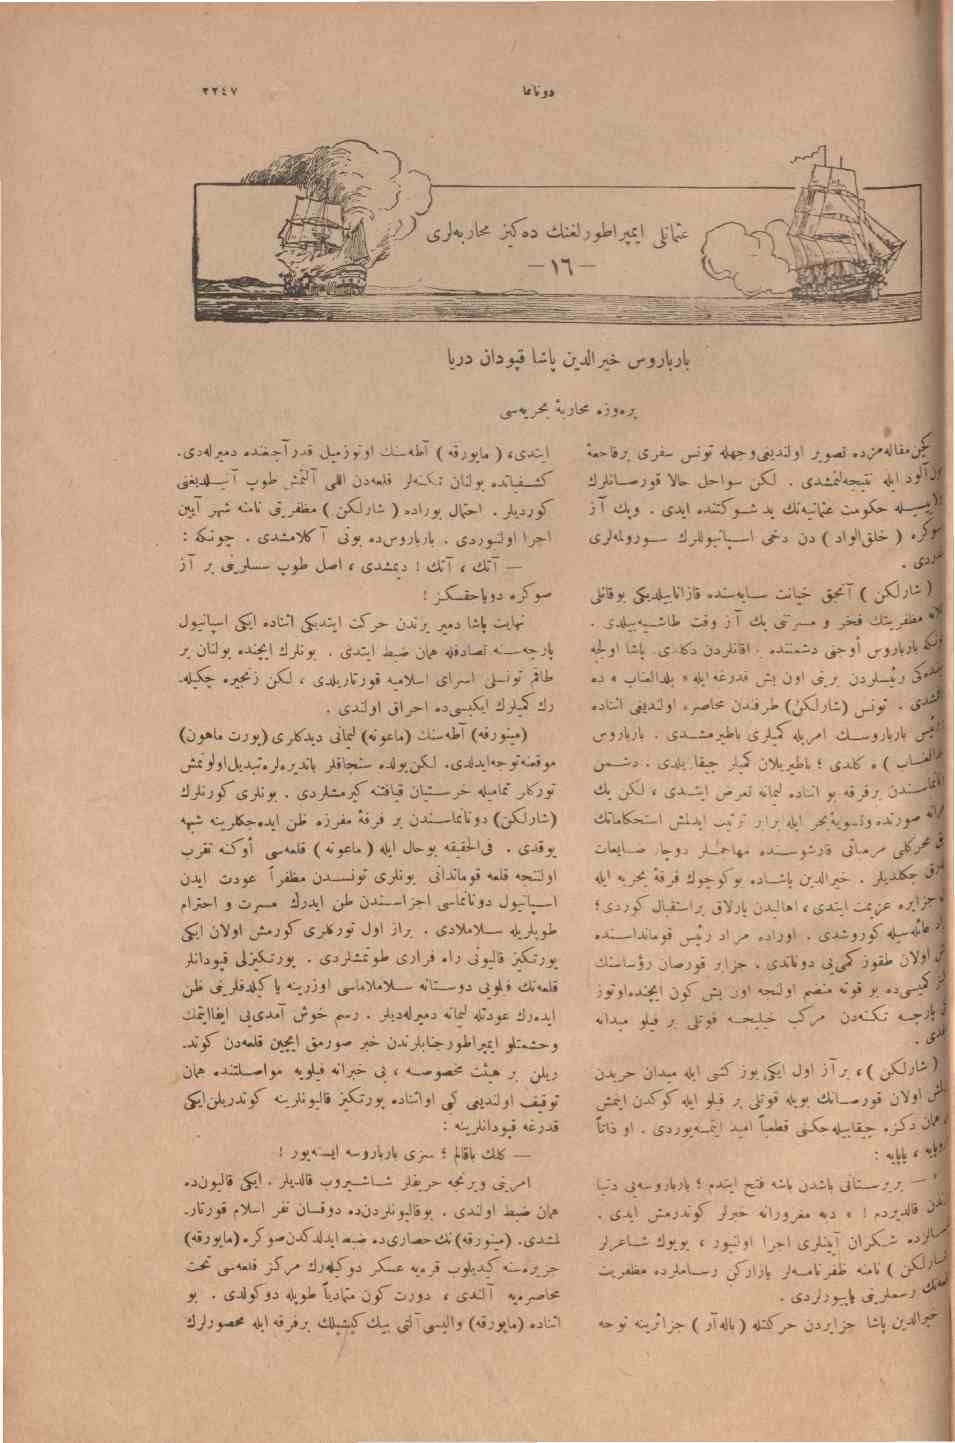 دوناما
٢٢٤٧
عثمانلی ایمپراطورلغنك ده‌كیز محاربه‌لری
—١٦—
بارباروس خیرالدین پاشا قپودان دریا
پره‌وزه محاربۀ بحریه‌سی
كچن مقاله‌مزده تصویر اولندیغی وجهله تونس سفری برفاجعۀ
آلود ایله نتیجه‌لنمشدی . لكن سواحل حالا قورصانلرك
حكومت عثمانیه‌نك ید شوكتنده ایدی . وپك آز
صوكره ( خلق‌الواد ) دن دخی اسپانیوللرك سورولمه‌لری
( شارلكن ) آنجق خیانت سایه‌سنده قازانابیلدیكی بوقانلی
مظفریتك فخر و مسرتنی پك آز وقت طاشیه‌بیلدی .
بارباروس أوجنی دشمننده براقانلردن دكلدی. پاشا اولجه
رئیسلردن برینی اون بش قدرغه ایله « بلدالعناب » ده
. تونس (شارلكن) طرفندن محاصره اولندیغی اثناده
بارباروسك امریله كمیلری باطیرمشدی . بارباروس
ه كلدی ؛ باطیریلان كمیلر چیقاریلدی . دشمن
برفرقه بو اثناده لیمانه تعرض ایتدی ، لكن پك
صورتده وتسویۀ بحر ایله برابر ترتیب ایدلمش استحكاماتك
مرمیاتی قارشوسنده مهاجملر دوچار ضایعات
چكلدیلر . خیرالدین پاشاده بوكوچوك فرقۀ بحریه ایله
جزایره عزیمت ایتدی ، اهالیدن پارلاق براستقبال كوردی؛
عائله‌سیله كوروشدی . اوراده مراد رئیس قومانداسنده
اولان طقوز كمی‌یی دوناندی . جزایر قورصان رؤساسنك
كمیسی‌ده بو قوته منضم اولنجه اون بش كون ایچنده‌اوتوز
پارچه تكنه‌دن مركب خیلیجه قوتلی بر فیلو میدانه
( شارلكن )، برآز اول ایكی یوز كمی ایله میدان حربدن
اولان قورصانك بویله قوتلی بر فیلو ایله كوكدن اینمش
همان دكزه چیقابیله‌جكنی قطعیاً امید ایتمه‌یوردی . او ذاتاً
، پاپایه :
— بربرستانی باشدن باشه فتح ایتدم ؛ بارباروسه‌یی دنیا
قالدیردم ! » دیه مغرورانه خبرلر كوندرمش ایدی .
شكران آیینلری اجرا اولنیور ، بویوك شاعرلر
(شارلكن ) نامنه ظفرنامه‌لر یازاركن رساملرده مظفریت
رسملرینی یاپیورلردی .
خیرالدین پاشا جزایردن حركتله ( باله‌آر ) جزائرینه توجه
ایتدی، ( مایورقه ) آطه‌سنك اوتوزمیل قدر آچغنده دمیرله‌دی.
كشفیاتده بولنان تكنه‌لر قلعه‌دن اللی آلتمش طوپ آتیلدیغنی
كوردیلر . احتمال بوراده ( شارلكن ) مظفریتی نامنه شهر آیین
اجرا اولنیوردی . بارباروس‌ده بونی آكلامشدی . چونكه :
— آتك ، آتك ! دیمشدی ، اصل طوپ سسلرینی بر آز
صوكره دویاجقسكز !
نهایت پاشا دمیر یرندن حركت ایتدیكی اثناده ایكی اسپانیول
پارچه‌سنه تصادفله همان ضبط ایتدی . بونلرك ایچنده بولنان بر
طاقم تونسلی اسرای اسلامیه قورتاریلدی ، لكن زنجیره چكیله‌
رك كمیلرك ایكیسی‌ده احراق اولندی .
(مینورقه) آطه‌سنك (ماعونه) لیمانی دیدكلری (پورت ماهون)
موقعنه توجه ایدلدی. لكن یولده سنجاقلر باندیره‌لره تبدیل اولونمش
توركلر تمامیله خرستیان قیافتنه كیرمشلردی . بونلری كورنلرك
(شارلكن) دونانماسندن بر فرقۀ مفرزه ظن ایده‌جكلرینه شبهه
یوقدی . فی‌الحقیقه بوحال ایله ( ماعونه ) قلعه‌سی أوكنه تقرب
اولنجه قلعه قوماندانی بونلری تونسدن مظفراً عودت ایدن
اسپانیول دونانماسی اجزاسندن ظن ایدرك مسرت و احترام
طوپلریله سلاملادی . براز اول توركلری كورمش اولان ایكی
پورتكیز قالیونی راه فراری طوتمشلردی . پورتكیزلی قپودانلر
قلعه‌نك فیلویی دوستانه سلاملاماسی اوزرینه یاكیلدقلرینی ظن
ایده‌رك عودتله لیمانه دمیرله‌دیلر . رسم خوش آمدی‌یی ایفا ایتمك
وحشمتلو ایمپراطور جنابلرندن خبر صورمق ایچین قلعه‌دن كوند‌
ریلن بر هیئت مخصوصه ، بی خبرانه فیلویه مواصلتنده همان
توقیف اولندیغی كبی اواثناده پورتكیز قالیونلرینه كوندریلن ایكی
قدرغه قپودانلرینه :
— كلك باقالم ؛ سزی بارباروسه ایسته‌یور !
امرینی ویرنجه حریفلر شاشیروب قالدیلر . ایكی قالیون‌ده
همان ضبط اولندی . بوقالیونلردن‌ده دوقسان نفر اسلام قورتار‌
لمشدی. (مینورقه) نك حصاری‌ده ضبط ایدلدكدن صوكره (مایورقه)
جزیره‌سنه كیدیلوب قره‌یه عسكر دوكیله‌رك مركز قلعه‌سی تحت
محاصره‌یه آلندی ، دورت كون متمادیاً طوپله دوكولدی . بو
اثناده (مایورقه) والیسی آلتی بیك كیشیلك برفرقه ایله محصورلرك